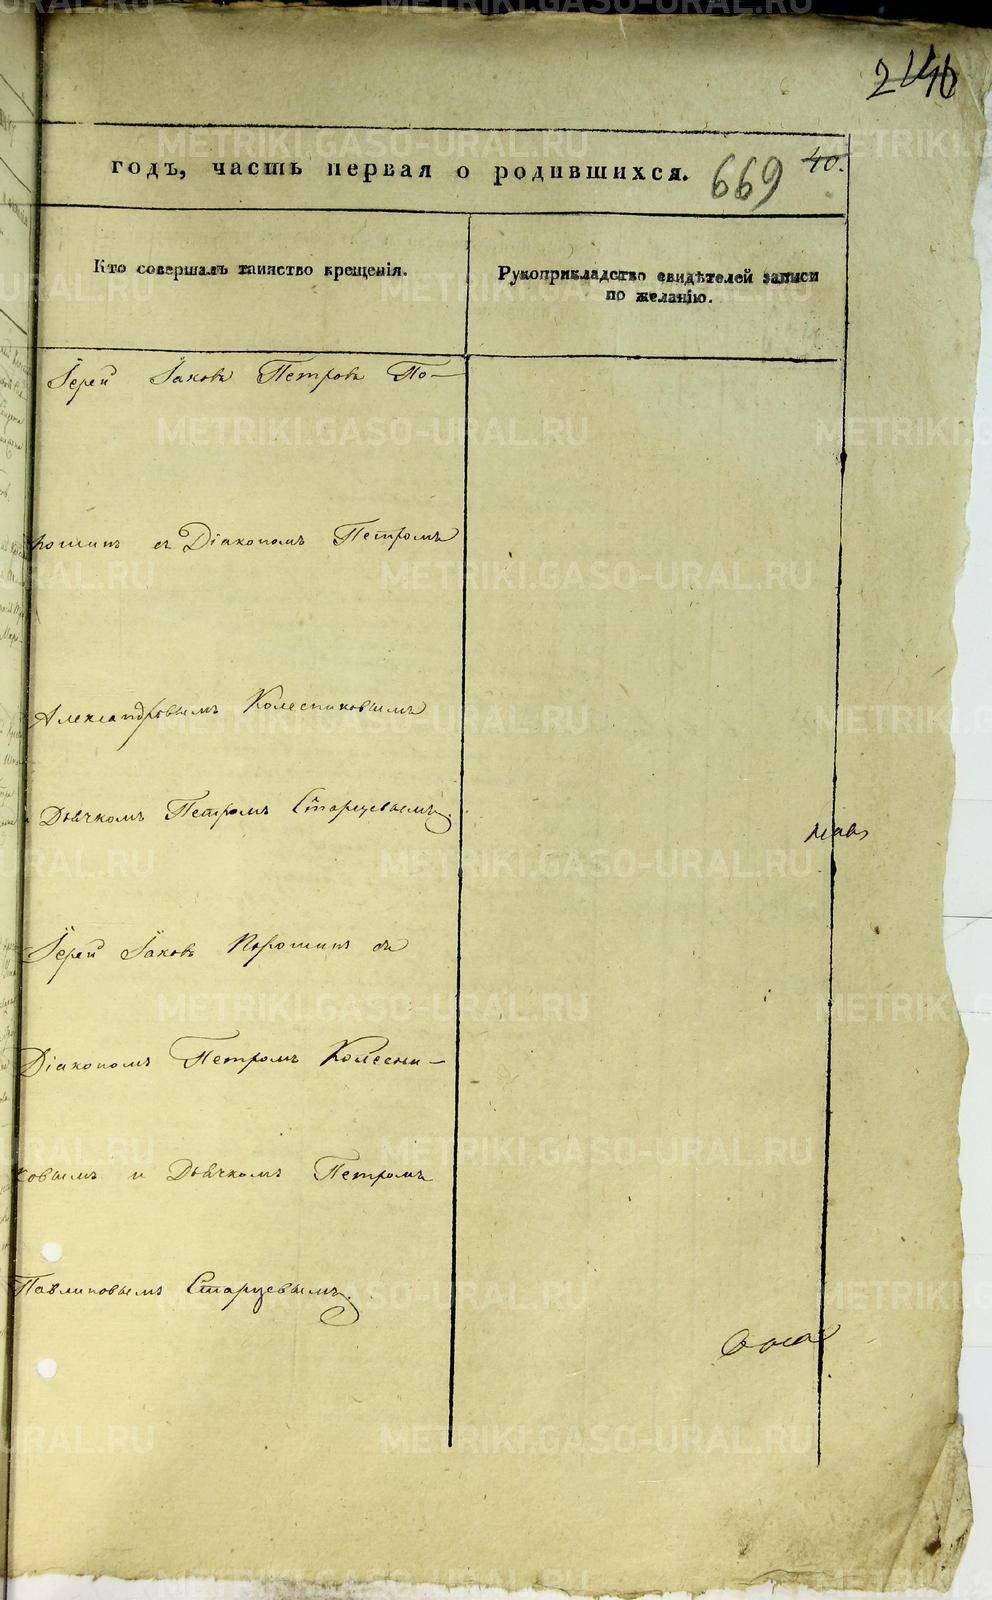 годъ, часть первая о родившихся.
669
40.
Кто совершалъ таинство крещенія.
Рукоприкладство свидѣтелей записи
по желанію.
Іерей Іаковъ Петровъ По-
рошинъ съ Діакономъ Петромъ
Александровымъ Колесниковымъ
Дьячкомъ Петромъ Старцевымъ.
Іерей Іаковъ Порошинъ съ
Діакономъ Петромъ Колесни-
ковымъ и Дьячкомъ Петромъ
Павлиновымъ Старцевымъ.
METRIKI.GASO-URAL.RU